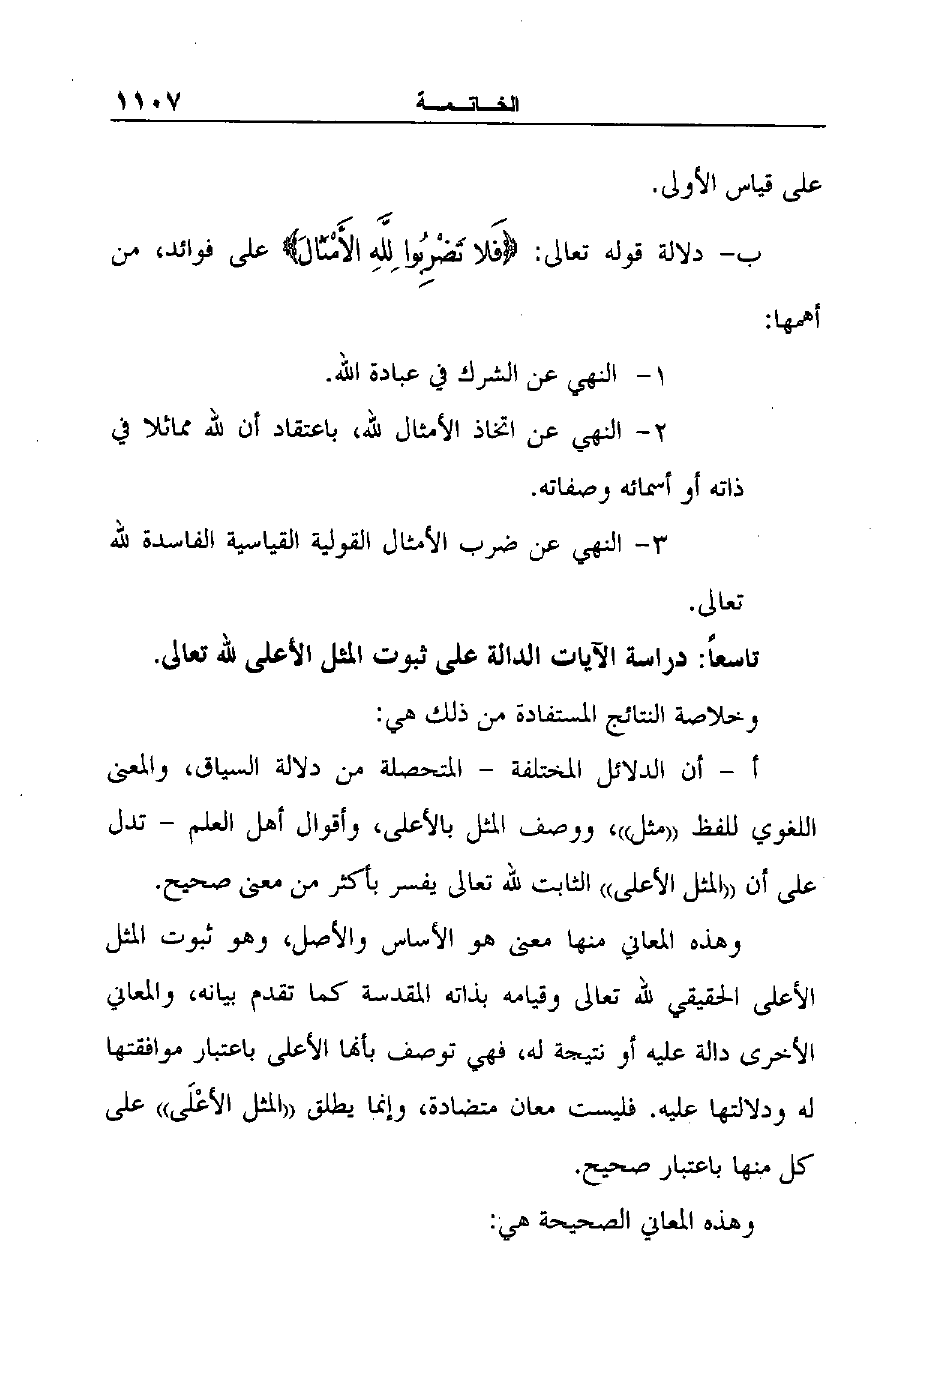 الخاتمة ١١٠٧
على قياس الأولى.
ب- دلالة قوله تعالى: ﴿فَلا تَضْرِبُوا لِلَّهِ الأَمْثَالَ﴾ على فوائد، من
أهمها:
١- النهي عن الشرك في عبادة الله.
٢- النهي عن اتخاذ الأمثال لله، باعتقاد أن لله مماثلا في
ذاته أو أسمائه وصفاته.
٣- النهي عن ضرب الأمثال القولية القياسية الفاسدة لله
تعالى.
تاسعاً: دراسة الآيات الدالة على ثبوت المثل الأعلى لله تعالى.
وخلاصة النتائج المستفادة من ذلك هي:
أ - أن الدلائل المختلفة - المتحصلة من دلالة السياق، والمعنى
اللغوي للفظ ((مثل))، ووصف المثل بالأعلى، وأقوال أهل العلم - تدل
على أن ((المثل الأعلى)) الثابت لله تعالى يفسر بأكثر من معنى صحيح.
وهذه المعاني منها معنى هو الأساس والأصل، وهو ثبوت المثل
الأعلى الحقيقي لله تعالى وقيامه بذاته المقدسة كما تقدم بيانه، والمعاني
الأخرى دالة عليه أو نتيجة له، فهي توصف بأنها الأعلى باعتبار موافقتها
له ودلالتها عليه. فليست معان متضادة، وإنما يطلق ((المثل الأعْلَى)) على
كل منها باعتبار صحيح.
وهذه المعاني الصحيحة هي: